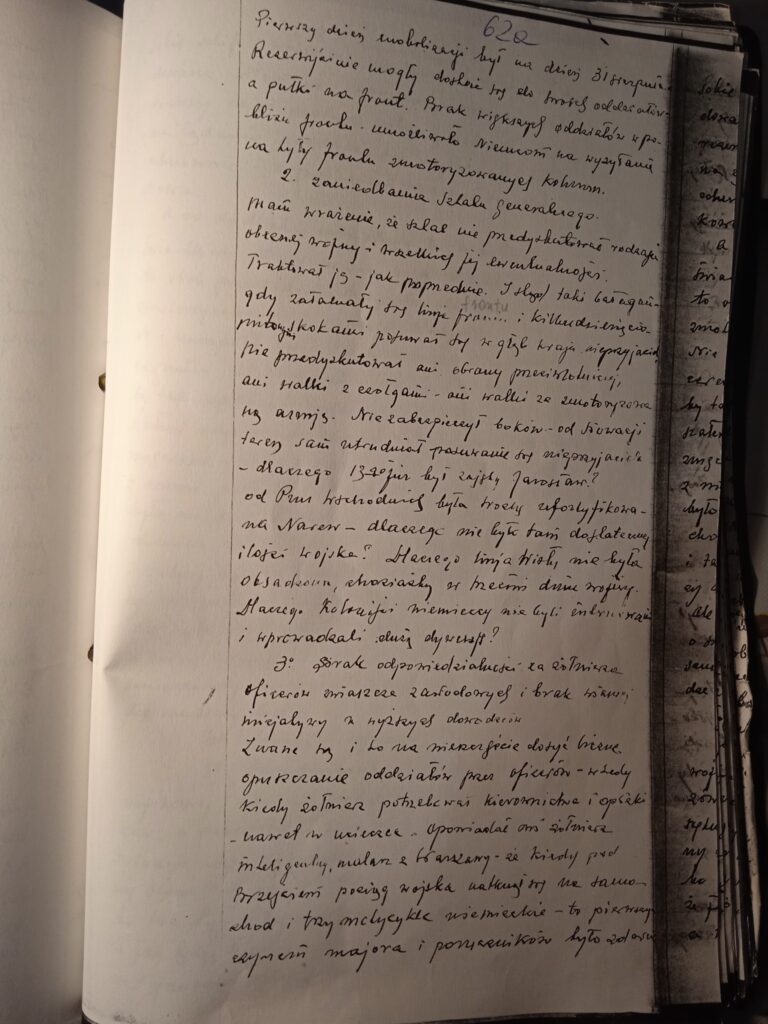 62a
Pierwszy dzień mobilizacji był na dzień 31 sierpnia.
Rezerwiści nie mogły dostać się do swoich oddziałów
a pułki na front. Brak większych oddziałów w po-
bliżu frontu umożliwiało Niemcom na wysyłanie
na tyły frontu zmotoryzowanych kolumn.
2. zaniedbania Sztabu Generalnego.
Mam wrażenie, że sztab nie przedyskutował rodzaju
obecnej wojny i wszelkiej jej ewentualności.
Traktował ją - jak poprzednie. I stąd taki bałagan -
gdy załamały się linje frontu i kilkudziesięcio-
skokami posuwał się w głąb kraju nieprzyjaciel
Nie przedyskutował ani obrony przeciwlotniczej,
ani walki z czołgami - ani walki ze zmotoryzowa
ną armją. Nie zabezpieczył boków - od Słowacji
teren sam utrudniał posuwanie się nieprzyjaciela
- dlaczego 13-go już był zajęty Jarosław?
od Prus Wschodnich była trochę ufortyfikowa-
na Narew - dlaczego nie było tam dostatecznej
ilości wojska? Dlaczego linja Wisły nie była
obsadzona, chociażby w trzecim dniu wojny.
Dlaczego Koloniści niemieccy nie byli internowani
i wprowadzali dużą dywersję?
3º. Brak odpowiedzialności za żołnierza
oficerów zwłaszcza zawodowych i brak własnej
inicjatywy u wyższych dowódców
Znane są i to na nieszczęście dosyć liczne
opuszczanie oddziałów przez oficerów - wtedy
kiedy żołnierz potrzebował kierownictwa i opieki
- nawet w ucieczce - opowiadał mi żołnierz
inteligentny, malarz z Warszawy - że kiedy pod
Brześciem pociąg wojska natknął się na samo-
chód i trzy motocykle niemieckie - to pierwszym
czynem majora i poruczników było